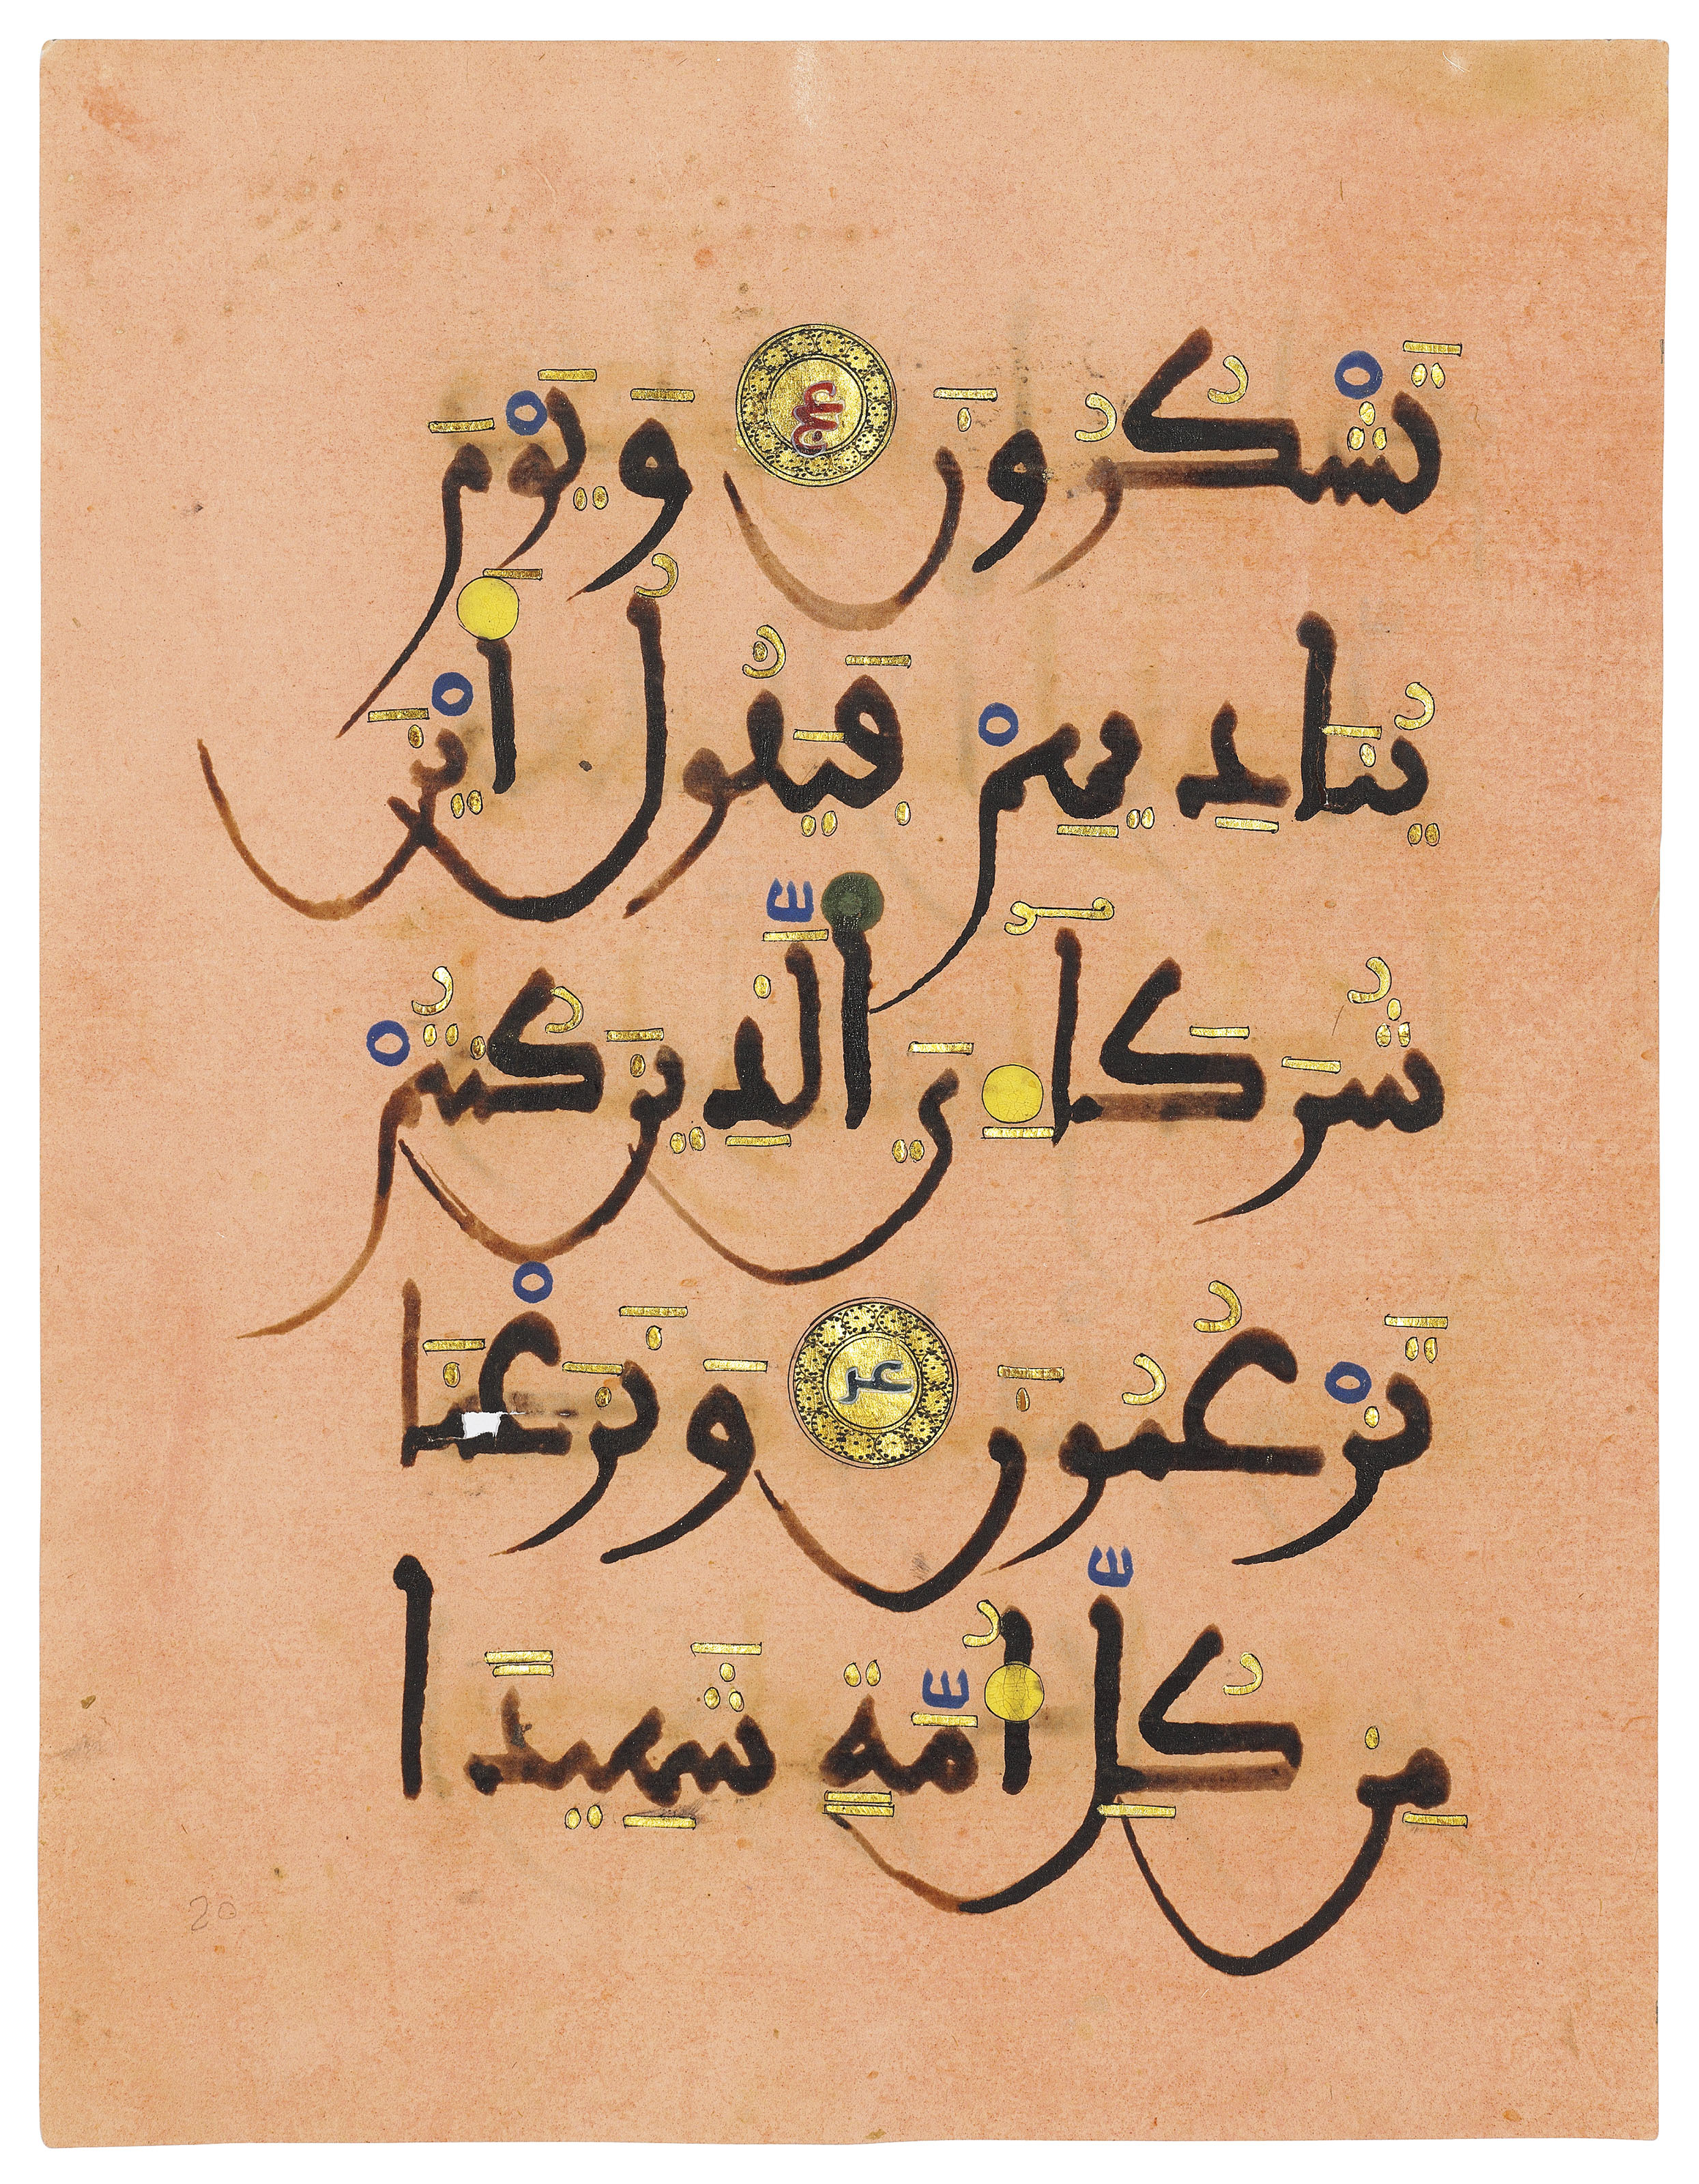 تَشْكُرُونَ وَيَوْمَ
يُنَادِيهِمْ فَيَقُولُ أَيْنَ
شُرَكَاءِيَ ٱلَّذِينَ كُنتُمْ
تَزْعُمُونَ وَنَزَعْنَا
مِن كُلِّ أُمَّةٍ شَهِيدًا
20